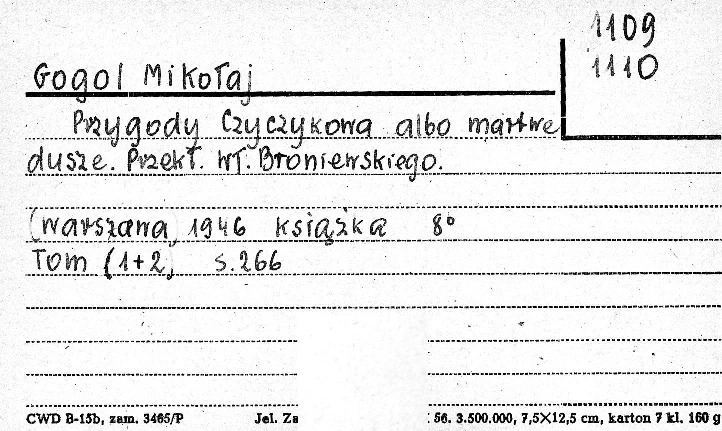 1109
1110
Gogol Mikołaj
Przygody Czyczykowa albo martwe
dusze. Przekł. Wł. Broniewskiego.
(Warszawa) 1946 książka 8°
Tom (1+2) s.266
CWD B-15b, zam. 3465/P Jel. Za 56. 3.500.000, 7,5×12,5 cm, karton 7 kl. 160 g